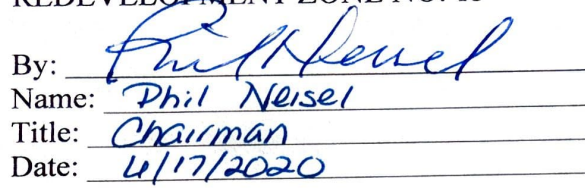 REDEVELOPMENT ZONE NO.
By: Phil Neisel
Name: Phil Neisel
Title: Chairman
Date: 4/17/2020